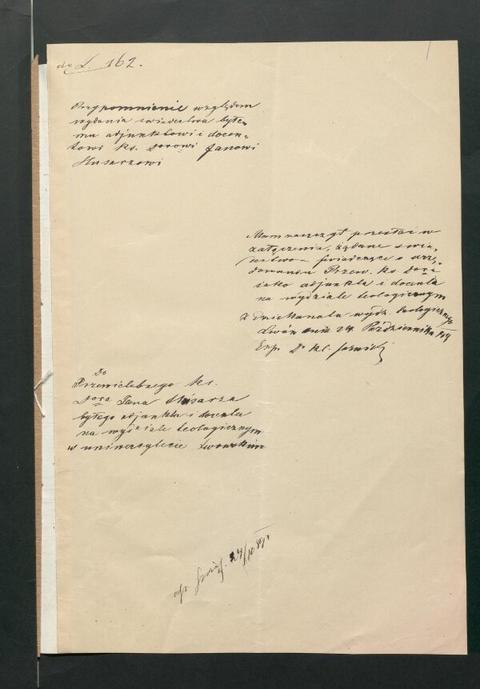 do L. 162.
Przypomnienie względem
wydania świadectwa byłe-
mu adjunktowi i docen-
towi ks. Janowi
Husarzowi
Mam zaszczyt przesłać w
załączeniu, żądane świa-
dectwo poświadczające o urzę-
dowaniu Przew. ks. Dra
jako adjunkta i docenta
na wydziale teologicznym
Z Dziekanatu wydz. teologicznego
Lwów dnia 24 Października
Exp. Dr Kl.
Do
Przewielebnego Ks.
Dra Jana Husarza
byłego adjunkta i docenta
na wydziale teologicznym
w uniwersytecie lwowskim
24/10